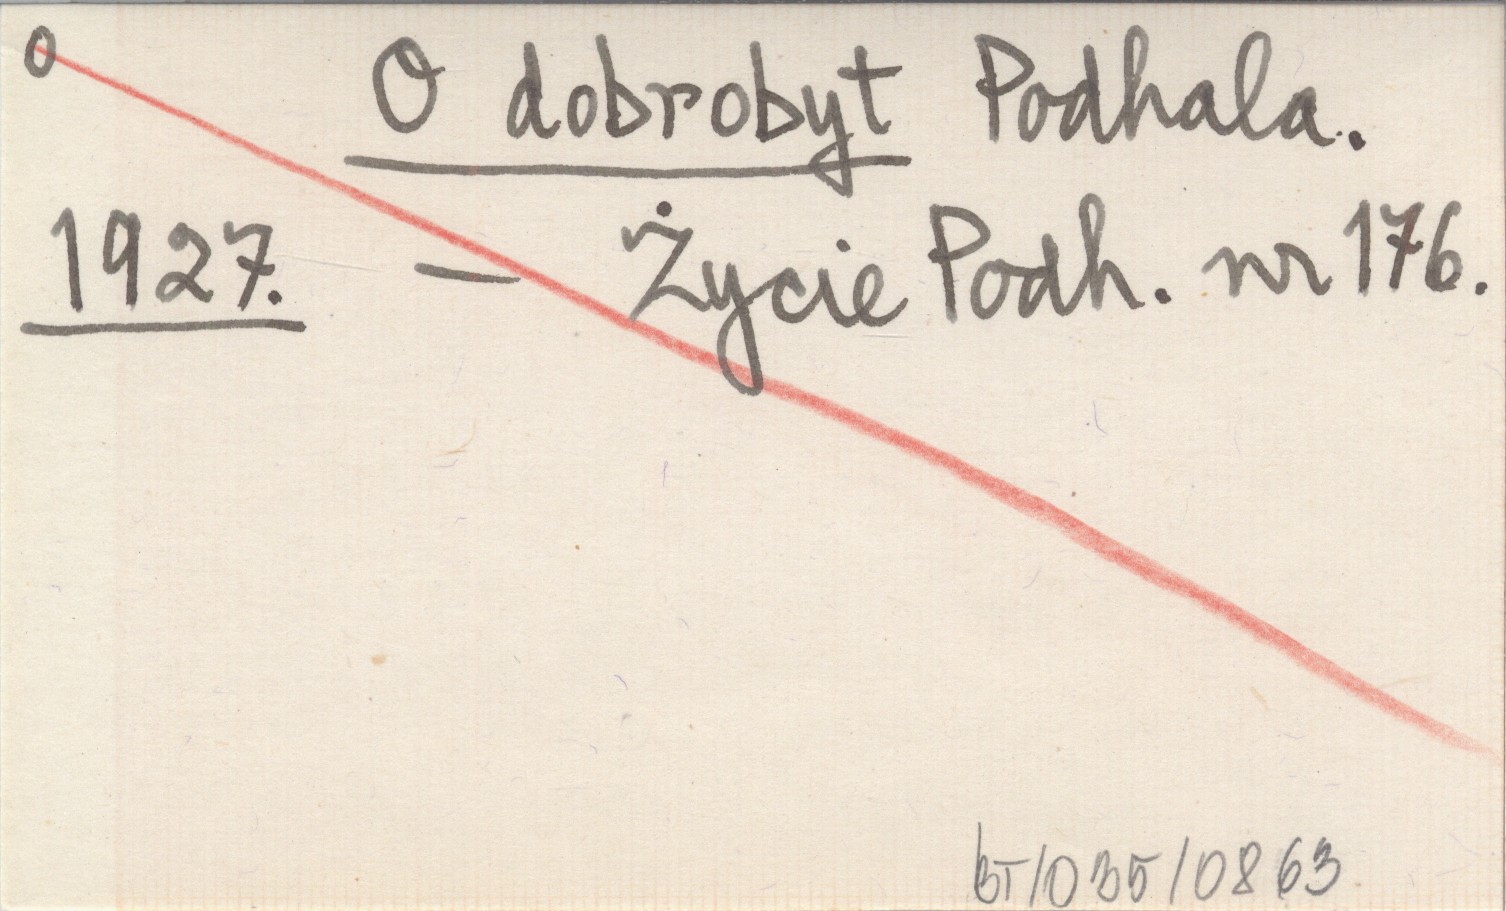 O
O dobrobyt Podhala.
1927. — Życie Podh. nr 176.
BT/035/0863